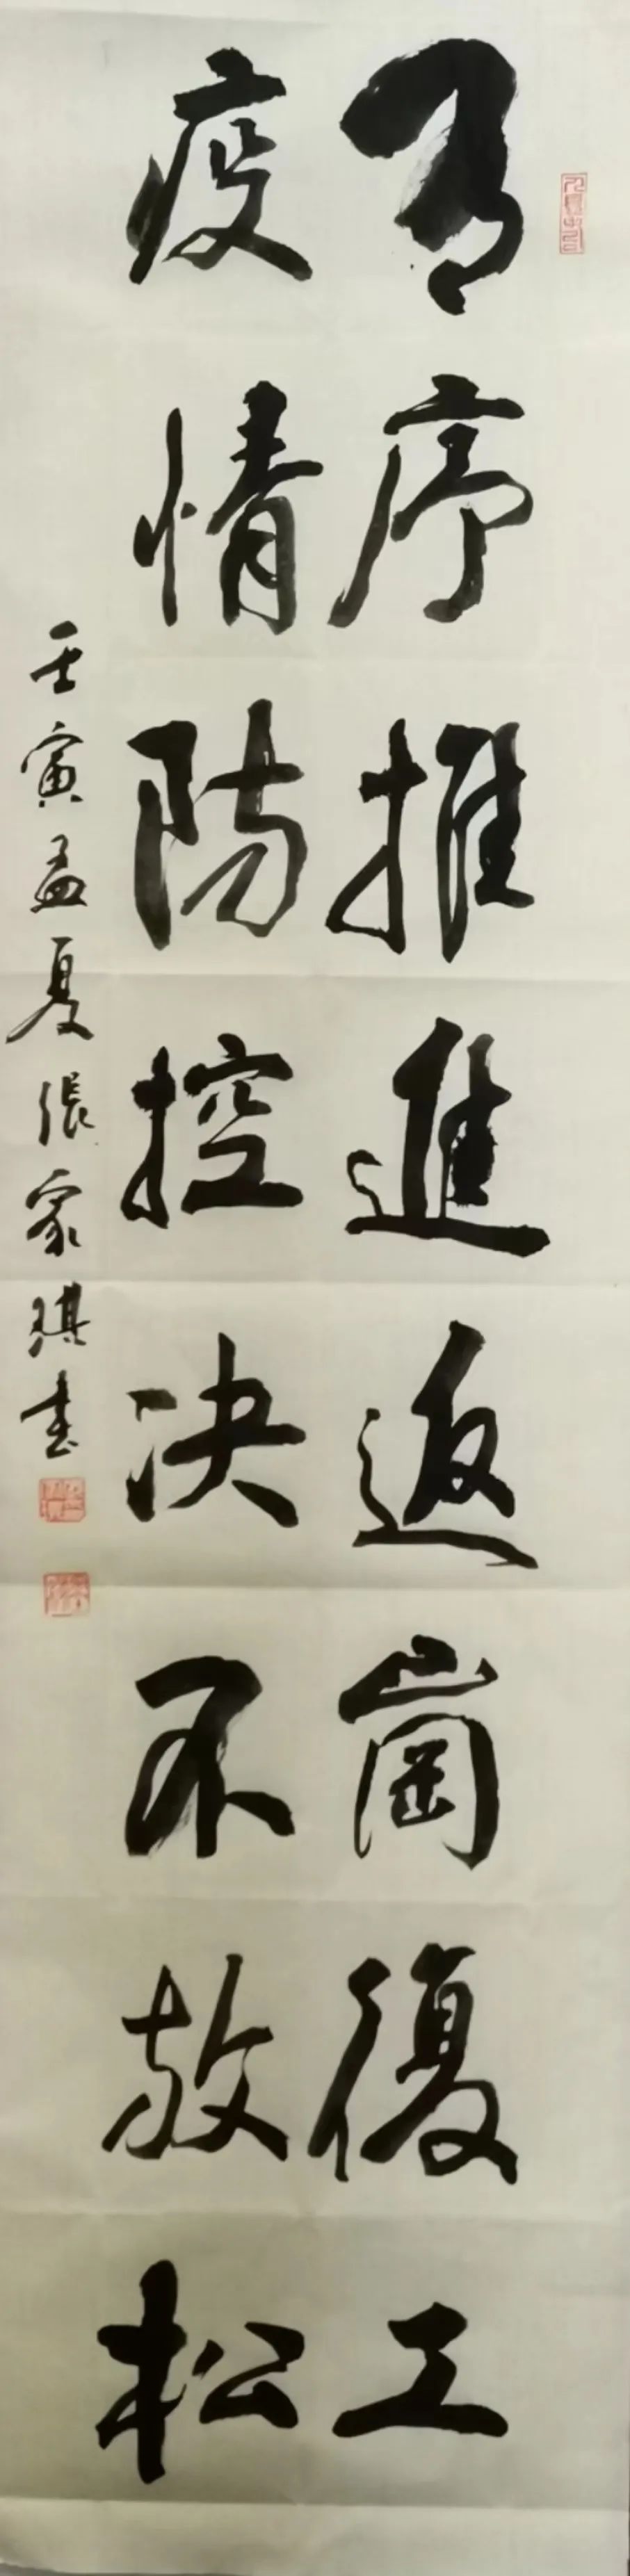 有序推進返崗復工
疫情防控决不放松
壬寅孟夏張家琪書